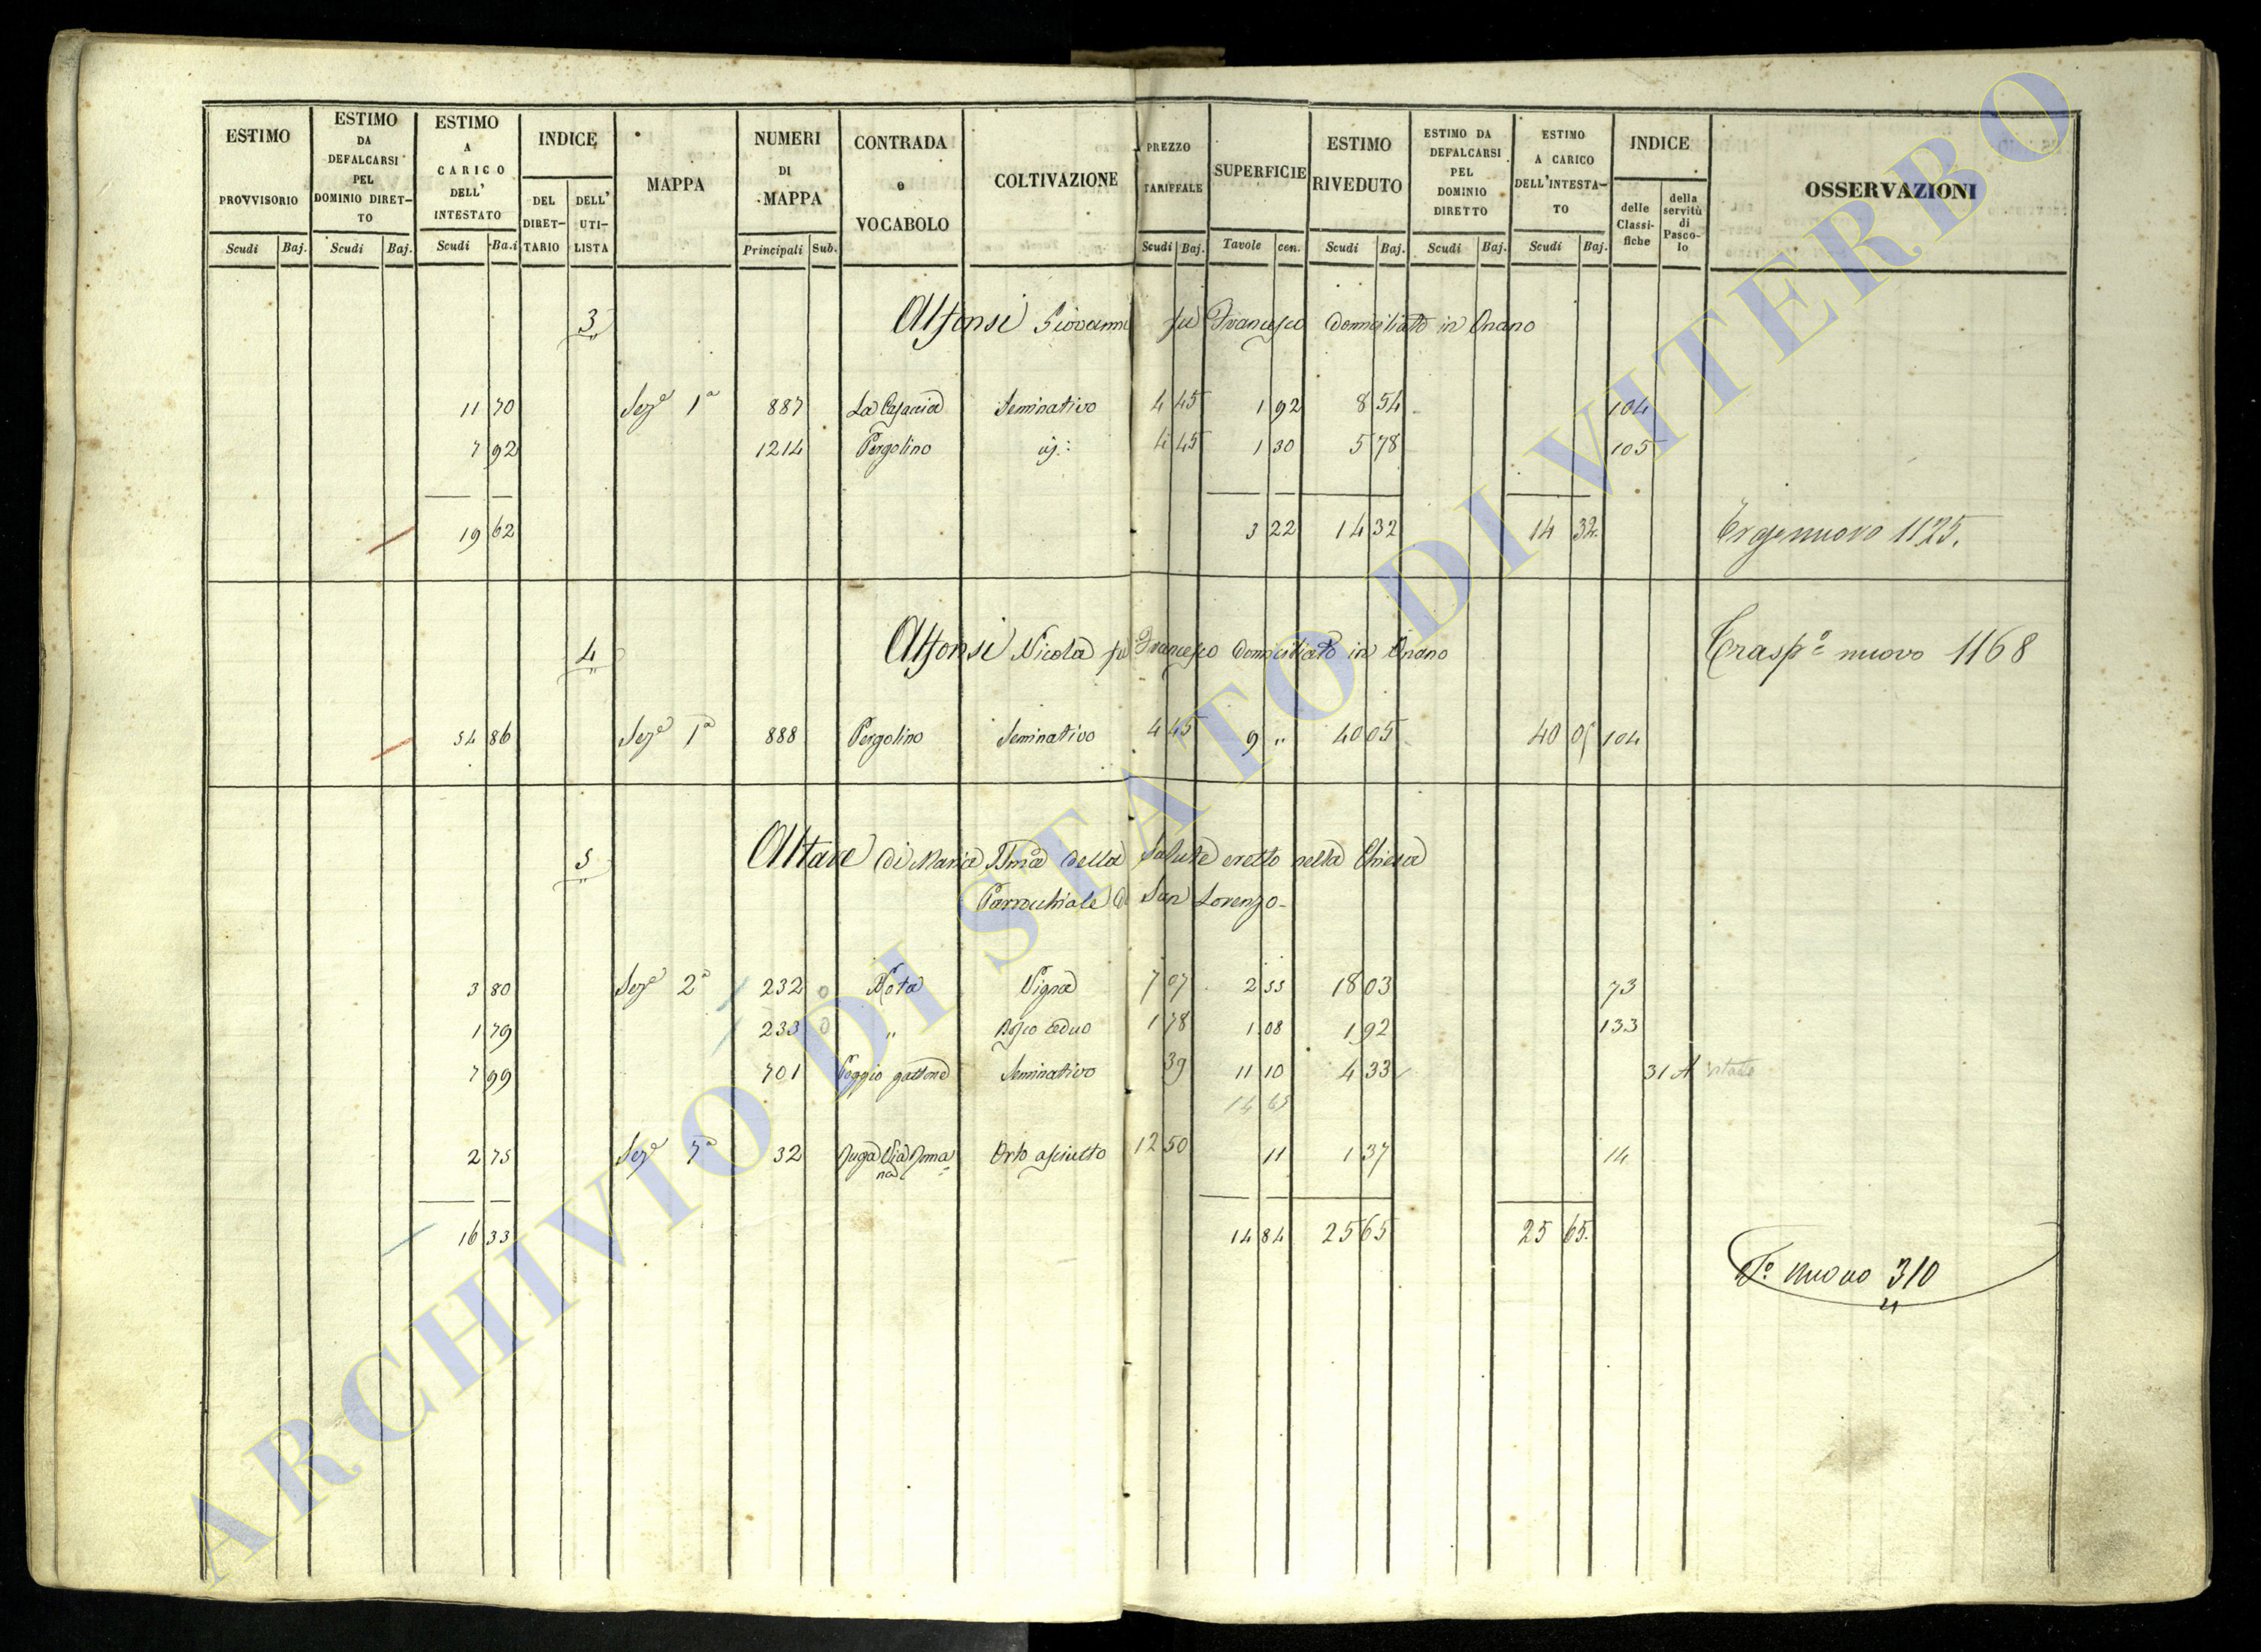 ESTIMO PROVVISORIO
ESTIMO DA DEFALCARSI PEL DOMINIO DIRET-TO
ESTIMO A CARICO DELL' INTESTATO
INDICE
DEL DIRET-TARIO
DELL' UTI-LISTA
MAPPA
NUMERI DI MAPPA
CONTRADA o VOCABOLO
COLTIVAZIONE
PREZZO TARIFFALE
SUPERFICIE
ESTIMO RIVEDUTO
ESTIMO DA DEFALCARSI PEL DOMINIO DIRETTO
ESTIMO A CARICO DELL'INTESTA-TO
INDICE
delle Classi-fiche
della servitù di Pasco-lo
OSSERVAZIONI
Scudi Baj. Scudi Baj. Scudi Ba.i Principali Sub. Scudi Baj. Tavole cen. Scudi Baj. Scudi Baj. Scudi Baj.
3 Alfonsi Giovanni fu Francesco domiciliato in Onano
11 70 Seze 1a 887 La Casaccia Seminativo 4 45 1 92 8 54 104
7 92 1214 Pergolino 4 45 1 30 5 78 105
19 62 3 22 14 32 14 32 nuovo 1125.
4 Alfonsi Nicola fu Francesco domiciliato in Onano Traspo nuovo 1168
54 86 Seze 1a 888 Pergolino Seminativo 4 45 9 " 40 05 40 05 104
5 Altare di Maria SSma della Salute eretto nella Chiesa
Parrochiale di San Lorenzo
3 80 Seze 2a 232 Vigna 7 07 2 55 18 03 73
1 79 233 " Bosco ceduo 1 78 1 08 1 92 133
7 99 701 Poggio gattone Seminativo 39 11 10 4 33 31 A
14 65
2 75 Seze 7a 32 Ruga Via Romana Orto asciutto 12 50 11 1 37 14
16 33 14 84 25 65 25 65
To nuovo 310
ARCHIVIO DI STATO DI VITERBO